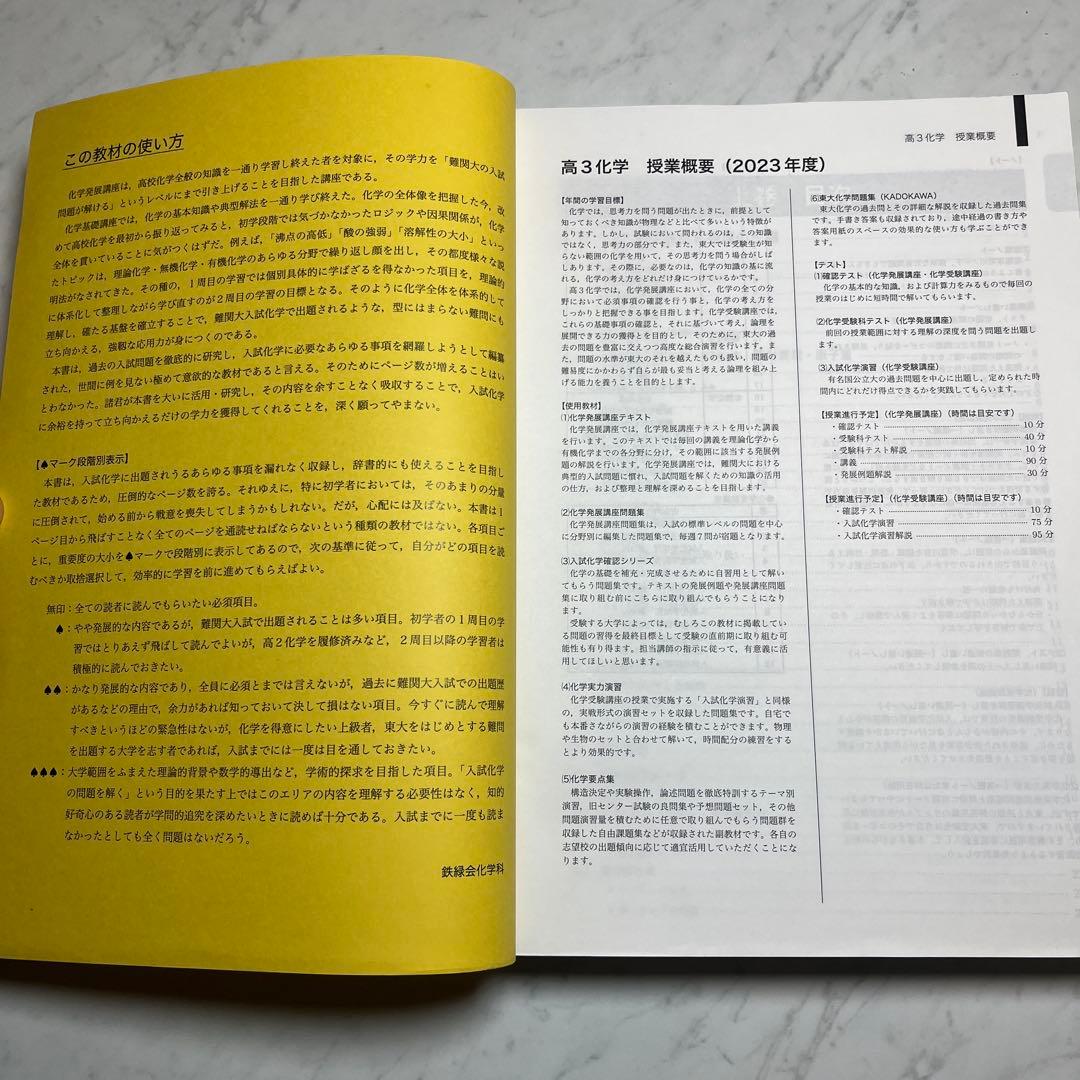 この教材の使い方
化学発展講座は，高校化学全般の知識を一通り学習し終えた者を対象に，その学力を「難関大の入試
問題が解ける」というレベルにまで引き上げることを目指した講座である。
化学基礎講座では，化学の基本知識や典型解法を一通り学び終えた。化学の全体像を把握した今，改
めて高校化学を最初から振り返ってみると，初学段階では気づかなかったロジックや因果関係が，化学
全体を貫いていることに気がつくはずだ。例えば，「沸点の高低」「酸の強弱」「溶解性の大小」といっ
たトピックは，理論化学・無機化学・有機化学のあらゆる分野で繰り返し顔を出し，その都度様々な説
明法がなされてきた。その種の，１周目の学習では個別具体的に学ばざるを得なかった項目を，理論的
に体系化して整理しながら学び直すのが２周目の学習の目標となる。そのように化学全体を体系的して
理解し，確たる基盤を確立することで，難関大入試化学で出題されるような，型にはまらない難問にも
立ち向かえる，強靱な応用力が身につくのである。
本書は，過去の入試問題を徹底的に研究し，入試化学に必要なあらゆる事項を網羅しようとして編纂
された，世間に例を見ない極めて意欲的な教材であると言える。そのためにページ数が増えることはい
とわなかった。諸君が本書を大いに活用・研究し，その内容を余すことなく吸収することで，入試化学
に余裕を持って立ち向かえるだけの学力を獲得してくれることを，深く願ってやまない。
【♠マーク段階別表示】
本書は，入試化学に出題されうるあらゆる事項を漏れなく収録し，辞書的にも使えることを目指し
た教材であるため，圧倒的なページ数を誇る。それゆえに，特に初学者においては，そのあまりの分量
に圧倒されて，始める前から戦意を喪失してしまうかもしれない。だが，心配には及ばない。本書は１
ページ目から飛ばすことなく全てのページを通読せねばならないという種類の教材ではない。各項目ご
とに，重要度の大小を♠マークで段階別に表示してあるので，次の基準に従って，自分がどの項目を読
むべきか取捨選択して，効率的に学習を前に進めてもらえばよい。
無印：全ての読者に読んでもらいたい必須項目。
♠：やや発展的な内容であるが，難関大入試で出題されることは多い項目。初学者の１周目の学
習ではとりあえず飛ばして読んでよいが，高２化学を履修済みなど，２周目以降の学習者は
積極的に読んでおきたい。
♠♠：かなり発展的な内容であり，全員に必須とまでは言えないが，過去に難関大入試での出題歴
があるなどの理由で，余力があれば知っておいて決して損はない項目。今すぐに読んで理解
すべきというほどの緊急性はないが，化学を得意にしたい上級者，東大をはじめとする難問
を出題する大学を志す者であれば，入試までには一度は目を通しておきたい。
♠♠♠：大学範囲をふまえた理論的背景や数学的導出など，学術的探求を目指した項目。「入試化学
の問題を解く」という目的を果たす上ではこのエリアの内容を理解する必要性はなく，知的
好奇心のある読者が学問的追究を深めたいときに読めば十分である。入試までに一度も読ま
なかったとしても全く問題はないだろう。
鉄緑会化学科
高３化学　授業概要
高３化学　授業概要（2023年度）
【年間の学習目標】
化学では，思考力を問う問題が出たときに，前提として
知っておくべき知識が物理などと比べて多いという特徴が
あります。しかし，試験において問われるのは，この知識
ではなく，思考力の部分です。また，東大では受験生が知
らない範囲の化学を用いて，その思考力を問う場合がしば
しあります。その際に，必要なのは，化学の知識の基に流
れる，化学の考え方をどれだけ身につけているかです。
高３化学では，化学発展講座において，化学の全ての分
野において必須事項の確認を行う事と，化学の考え方を
しっかりと把握できる事を目指します。化学受験講座では，
これらの基礎事項の確認と，それに基づいて考え，論理を
展開できる力の獲得とを目的とし，そのために，東大の過
去の問題を豊富に交えつつ高度な総合演習を行います。ま
た，問題の水準が東大のそれを越えたものも扱い，問題の
難易度にかかわらず自らが最も妥当と考える論理を組み上
げる能力を養うことを目的とします。
【使用教材】
⑴化学発展講座テキスト
化学発展講座では，化学発展講座テキストを用いた講義
を行います。このテキストでは毎回の講義を理論化学から
有機化学までの各分野に分け，その範囲に該当する発展例
題の解説を行います。化学発展講座では，難関大における
典型的入試問題に慣れ，入試問題を解くための知識の活用
の仕方，および整理と理解を深めることを目指します。
⑵化学発展講座問題集
化学発展講座問題集は，入試の標準レベルの問題を中心
に分野別に編集した問題集で，毎週７問が宿題となります。
⑶入試化学確認シリーズ
化学の基礎を補充・完成させるために自習用として解い
てもらう問題集です。テキストの発展例題や発展講座問題
集に取り組む前にこちらに取り組んでもらうことになり
ます。
受験する大学によっては，むしろこの教材に掲載してい
る問題の習得を最終目標として受験の直前期に取り組む可
能性も有り得ます。担当講師の指示に従って，有意義に活
用してほしいと思います。
⑷化学実力演習
化学受験講座の授業で実施する「入試化学演習」と同様
の，実戦形式の演習セットを収録した問題集です。自宅で
も本番さながらの演習の経験を積むことができます。物理
や生物のセットと合わせて解いて，時間配分の練習をする
とより効果的です。
⑸化学要点集
構造決定や実験操作，論述問題を徹底特訓するテーマ別
演習，旧センター試験の良問集や予想問題セット，その他
問題演習量を積むために任意で取り組んでもらう問題群を
収録した自由課題集などが収録された副教材です。各自の
志望校の出題傾向に応じて適宜活用していただくことにな
ります。
⑹東大化学問題集（KADOKAWA）
東大化学の過去問とその詳細な解説を収録した過去問集
です。手書き答案も収録されており，途中経過の書き方や
答案用紙のスペースの効果的な使い方も学ぶことができま
す。
【テスト】
⑴確認テスト（化学発展講座・化学受験講座）
化学の基本的な知識，および計算力をみるもので毎回の
授業のはじめに短時間で解いてもらいます。
⑵化学受験科テスト（化学発展講座）
前回の授業範囲に対する理解の深度を問う問題を出題し
ます。
⑶入試化学演習（化学受験講座）
有名国公立大の過去問題を中心に出題し，定められた時
間内にどれだけ得点できるかを実践してもらいます。
【授業進行予定】（化学発展講座）（時間は目安です）
・確認テスト ------ 10分
・受験科テスト ------ 40分
・受験科テスト解説 ------ 10分
・講義 ------ 90分
・発展例題解説 ------ 30分
【授業進行予定】（化学受験講座）（時間は目安です）
・確認テスト ------ 10分
・入試化学演習 ------ 75分
・入試化学演習解説 ------ 95分